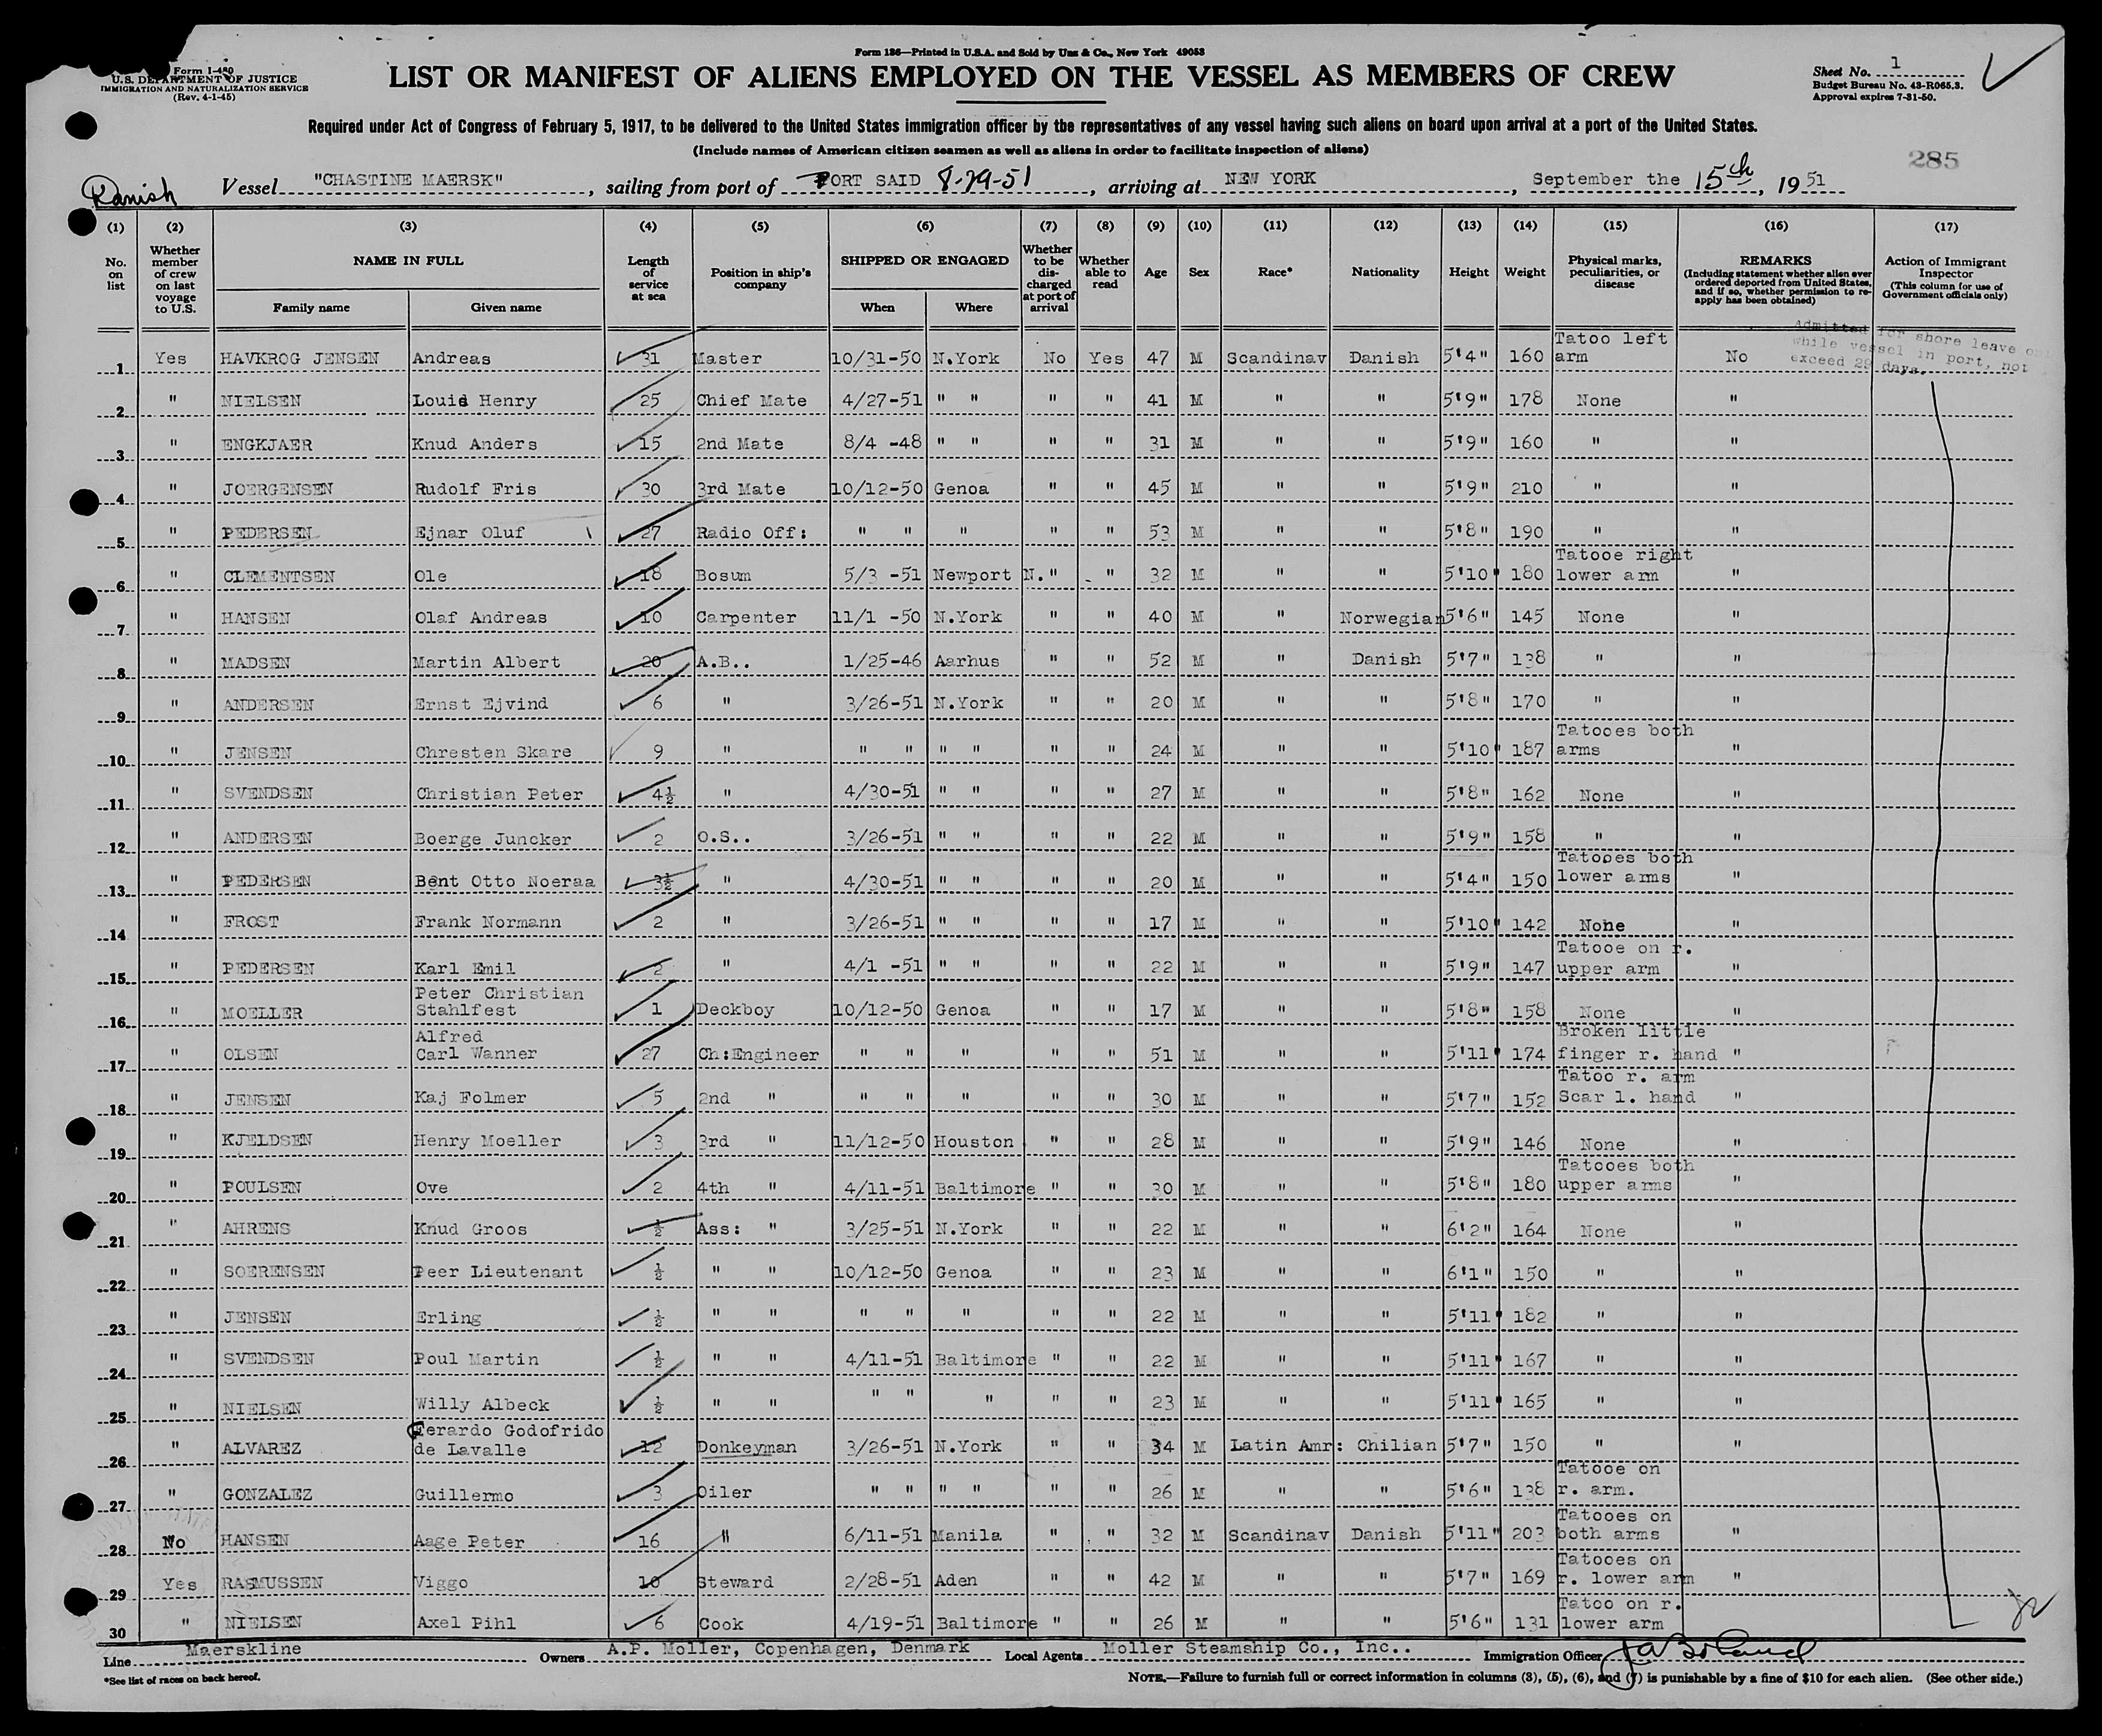 Form 126—Printed in U.S.A. and Sold by Unz & Co., New York 49053
Form I-480
U.S. DEPARTMENT OF JUSTICE
IMMIGRATION AND NATURALIZATION SERVICE
(Rev. 4-1-45)
LIST OR MANIFEST OF ALIENS EMPLOYED ON THE VESSEL AS MEMBERS OF CREW
Sheet No. 1
Budget Bureau No. 43-R065.3.
Approval expires 7-31-50.
Required under Act of Congress of February 5, 1917, to be delivered to the United States immigration officer by the representatives of any vessel having such aliens on board upon arrival at a port of the United States.
(Include names of American citizen seamen as well as aliens in order to facilitate inspection of aliens)
285
Danish Vessel "CHASTINE MAERSK", sailing from port of PORT SAID 8-29-51, arriving at NEW YORK, September the 15th, 1951
(1) (2) (3) (4) (5) (6) (7) (8) (9) (10) (11) (12) (13) (14) (15) (16) (17)
No. on list
Whether member of crew on last voyage to U.S.
NAME IN FULL
Family name
Given name
Length of service at sea
Position in ship's company
SHIPPED OR ENGAGED
When
Where
Whether to be discharged at port of arrival
Whether able to read
Age
Sex
Race*
Nationality
Height
Weight
Physical marks, peculiarities, or disease
REMARKS
(Including statement whether alien ever ordered deported from United States, and if so, whether permission to re-apply has been obtained)
Action of Immigrant Inspector
(This column for use of Government officials only)
Admitted for shore leave
while vessel in port, not
exceed 29 days.
1 Yes HAVKROG JENSEN Andreas 31 Master 10/31-50 N.York No Yes 47 M Scandinav Danish 5'4" 160 Tatoo left arm No
2 " NIELSEN Louis Henry 25 Chief Mate 4/27-51 " " " " 41 M " " 5'9" 178 None "
3 " ENGKJAER Knud Anders 15 2nd Mate 8/4 -48 " " " " 31 M " " 5'9" 160 " "
4 " JOERGENSEN Rudolf Fris 30 3rd Mate 10/12-50 Genoa " " 45 M " " 5'9" 210 " "
5 " PEDERSEN Ejnar Oluf 27 Radio Off: " " " " " 53 M " " 5'8" 190 " "
6 " CLEMENTSEN Ole 18 Bosum 5/3 -51 Newport N. " " 32 M " " 5'10" 180 Tatooe right lower arm "
7 " HANSEN Olaf Andreas 10 Carpenter 11/1 -50 N.York " " 40 M " Norwegian 5'6" 145 None "
8 " MADSEN Martin Albert 20 A.B.. 1/25-46 Aarhus " " 52 M " Danish 5'7" 138 " "
9 " ANDERSEN Ernst Ejvind 6 " 3/26-51 N.York " " 20 M " " 5'8" 170 " "
10 " JENSEN Chresten Skare 9 " " " " " " " 24 M " " 5'10" 187 Tatooes both arms "
11 " SVENDSEN Christian Peter 4½ " 4/30-51 " " " " 27 M " " 5'8" 162 None "
12 " ANDERSEN Boerge Juncker 2 O.S.. 3/26-51 " " " " 22 M " " 5'9" 158 " "
13 " PEDERSEN Bent Otto Noeraa 3½ " 4/30-51 " " " " 20 M " " 5'4" 150 Tatooes both lower arms "
14 " FROST Frank Normann 2 " 3/26-51 " " " " 17 M " " 5'10" 142 None "
15 " PEDERSEN Karl Emil 2 " 4/1 -51 " " " " 22 M " " 5'9" 147 Tatooe on r. upper arm "
16 " MOELLER Peter Christian Stahlfest 1 Deckboy 10/12-50 Genoa " " 17 M " " 5'8" 158 None "
17 " OLSEN Alfred Carl Wanner 27 Ch:Engineer " " " " " 51 M " " 5'11" 174 Broken little finger r. hand "
18 " JENSEN Kaj Folmer 5 2nd " " " " " " 30 M " " 5'7" 152 Tatoo r. arm Scar l. hand "
19 " KJELDSEN Henry Moeller 3 3rd " 11/12-50 Houston " " 28 M " " 5'9" 146 None "
20 " POULSEN Ove 2 4th " 4/11-51 Baltimore " " 30 M " " 5'8" 180 Tatooes both upper arms "
21 " AHRENS Knud Groos ½ Ass: " 3/25-51 N.York " " 22 M " " 6'2" 164 None "
22 " SOERENSEN Peer Lieutenant ½ " " 10/12-50 Genoa " " 23 M " " 6'1" 150 " "
23 " JENSEN Erling ½ " " " " " " " 22 M " " 5'11" 182 " "
24 " SVENDSEN Poul Martin ½ " " 4/11-51 Baltimore " " 22 M " " 5'11" 167 " "
25 " NIELSEN Willy Albeck ½ " " " " " " " 23 M " " 5'11" 165 " "
26 " ALVAREZ Gerardo Godofrido de Lavalle 12 Donkeyman 3/26-51 N.York " " 34 M Latin Amr: Chilian 5'7" 150 " "
27 " GONZALEZ Guillermo 3 Oiler " " " " " " 26 M " " 5'6" 138 Tatooe on r. arm. "
28 No HANSEN Aage Peter 16 " 6/11-51 Manila " " 32 M Scandinav Danish 5'11" 203 Tatooes on both arms "
29 Yes RASMUSSEN Viggo 10 Steward 2/28-51 Aden " " 42 M " " 5'7" 169 Tatooes on r. lower arm "
30 " NIELSEN Axel Pihl 6 Cook 4/19-51 Baltimore " " 26 M " " 5'6" 131 Tatoo on r. lower arm
Line Maerskline Owners A.P. Moller, Copenhagen, Denmark Local Agents Moller Steamship Co., Inc.. Immigration Officer
*See list of races on back hereof.
NOTE.—Failure to furnish full or correct information in columns (3), (5), (6), and (7) is punishable by a fine of $10 for each alien. (See other side.)